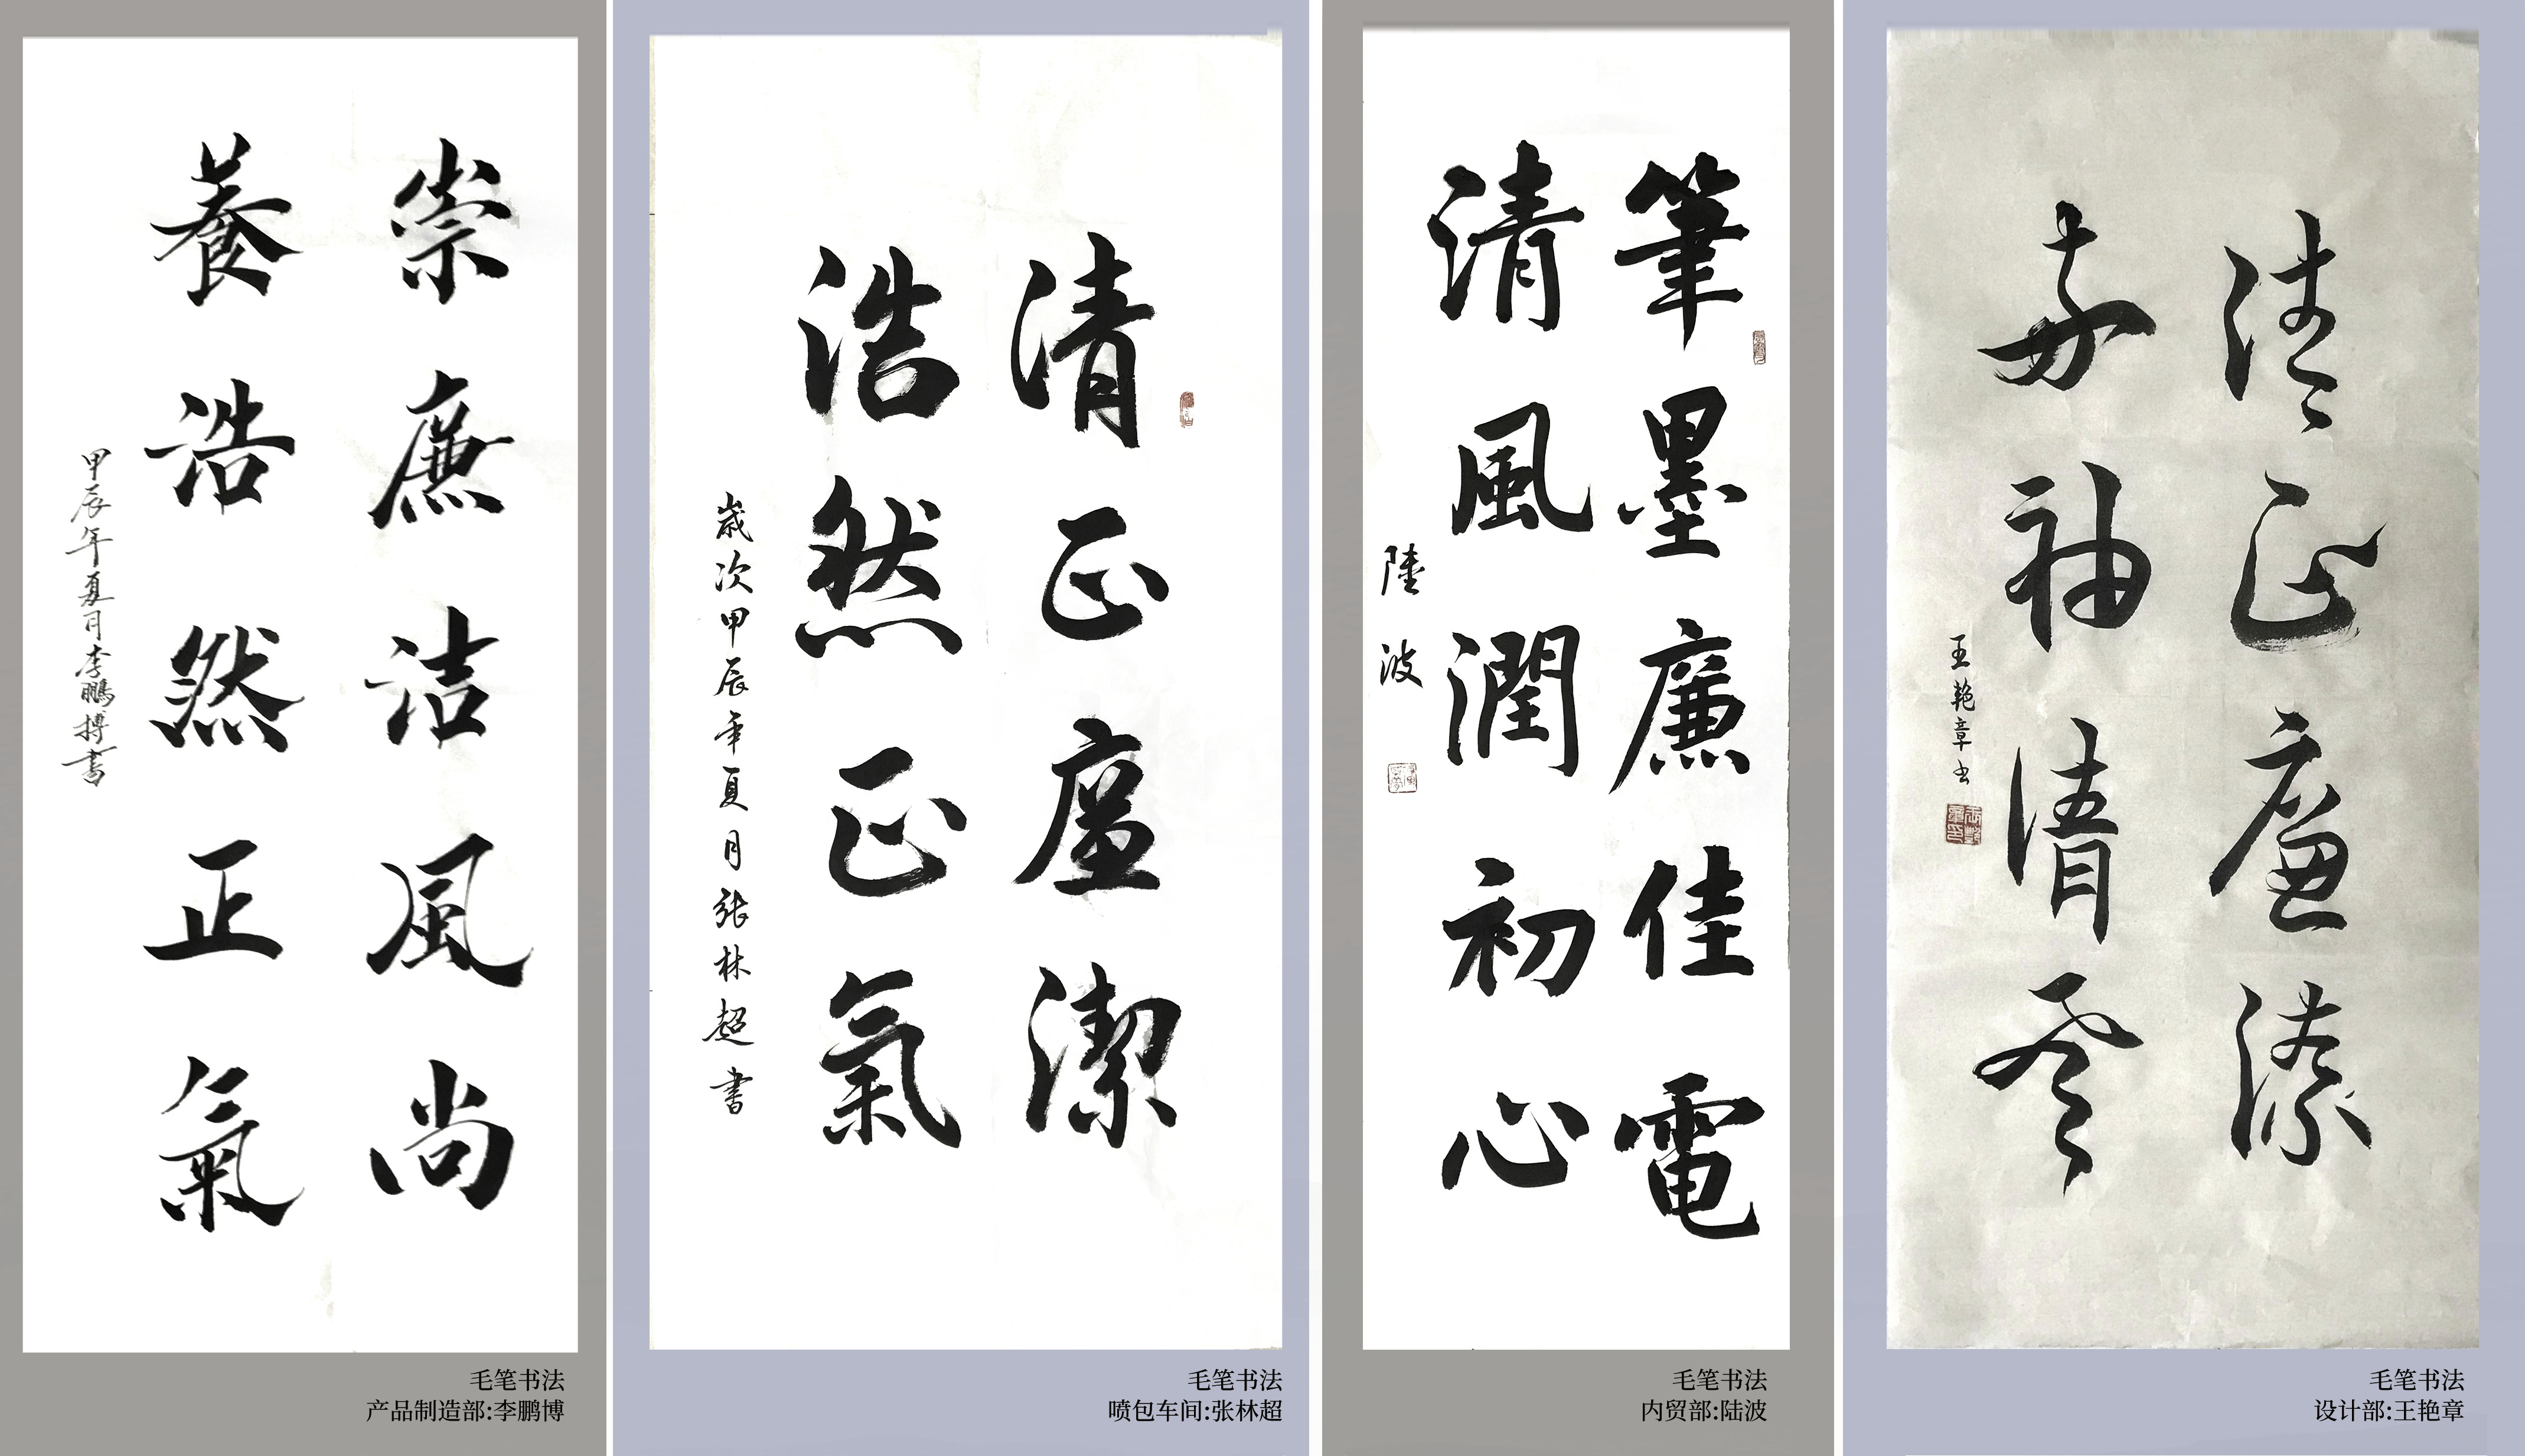 崇廉洁風尚
養浩然正氣
甲辰年夏月李鵬博書
毛笔书法
产品制造部:李鹏博
清正廉潔
浩然正氣
歲次甲辰年夏月張林超書
毛笔书法
喷包车间:张林超
筆墨廉佳電
清風潤初心
陸波
毛笔书法
内贸部:陆波
清正廉潔
两袖清風
王艳章书
毛笔书法
设计部:王艳章